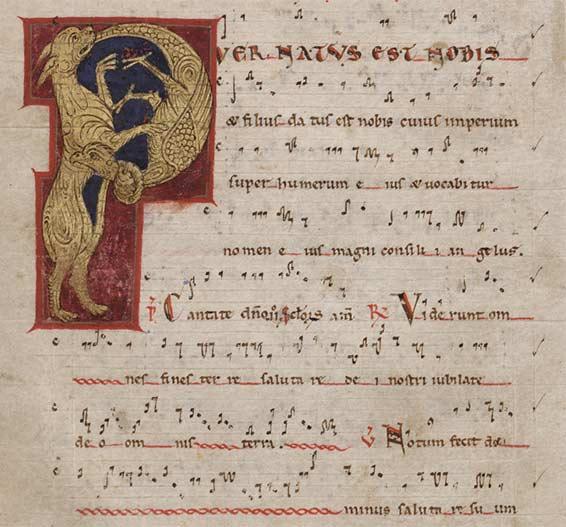 PUER NATUS EST NOBIS
& filius da tus est nobis cuius imperium
super humerum e ius & vocabitur
nomen e ius magni consili i an gelus.
Cantate Vide runt om
nes fines ter re saluta re de i nostri iubilate
de o om nis terra. Notum fecit do
minus saluta re su um